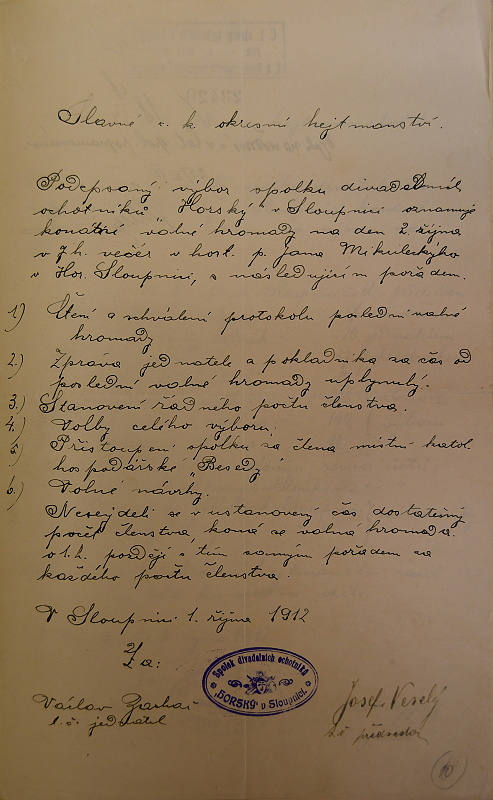 Slavné c. k. okresní hejtmanství.
Podepsaný výbor spolku divadelních
ochotníků „Horský" v Sloupnici oznamuje
konání valné hromady na den 2. října
v 7 h. večer v host. p. Jana Mikuleckýho
v Hor. Sloupnici, s následujícím pořadem.
1) Čtení a schválení protokolu poslední valné
hromady
2.) Zpráva jednatele a pokladníka za čas od
poslední valné hromady uplynulý.
3.) Stanovení řádného počtu členstva.
4.) Volby celého výboru.
5.) Přistoupení spolku za člena místní katol.
hospodářské „Besedy"
6.) Volné návrhy.
Nesejdeli se v ustanovený čas dostatečný
počet členstva, koná se valná hromada
o 1. h. později s tím samým pořadem za
každého počtu členstva.
V Sloupnici 1. října 1912
Za:
Spolek divadelních ochotníků
„HORSKÝ" v Sloupnici.
Václav
t. č. jednatel
Josef Veselý
t. č. předseda
10